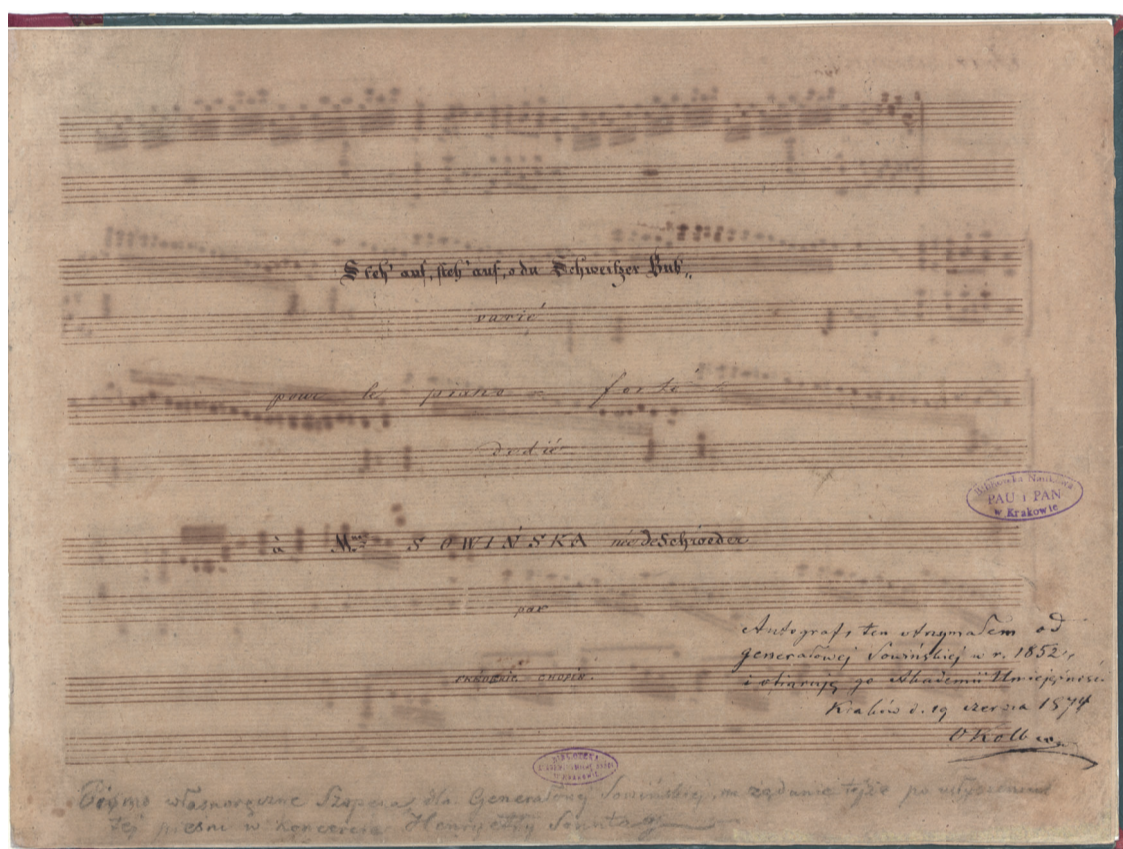 Steh' auf, steh' auf, o du Schweitzer Bub„
varié
pour le piano = forté
dedié
à M^me SOWIŃSKA née de Schroeder
par
FREDERIC CHOPIN.
Biblioteka Naukowa
PAU i PAN
w Krakowie
Autograf ten otrzymałem od
generałowej Sowińskiej w r. 1852,
i ofiaruję go Akademii Umiejętności
Kraków d. 19 czerwca 1874
O Kolberg
Pismo własnoręczne Szopena, dla Generałowej Sowińskiej, na żądanie tejże po usłyszeniu
tej pieśni w koncercie Henryetty Sonntag